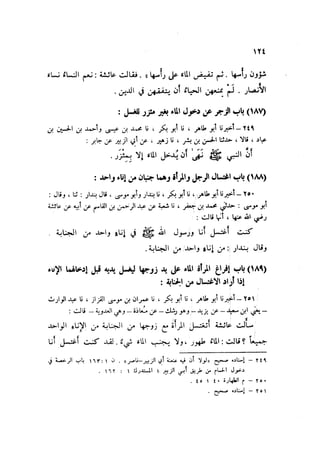 ١٢٤
شؤون رأسها . ثم تفيض الماء على رأسها ، . فقالت عائشة : نعم النساء نساء
الأنصار . لم يمنعهن الحياء أن يتفقهن في الدين .
(١٨٧) باب الزجر عن دخول الماء بغير مئزر للغسل :
٢٤٩ - أخبرنا أبو طاهر ، نا أبو بكر ، نا محمد بن عيسى وأحمد بن الحسين بن
عباد ، قالا ، حدثنا الحسن بن بشر ، نا زهير ، عن أبي الزبير عن جابر :
أن النبي ﷺ نهى أن يدخل الماء إلا بمئزر .
(١٨٨) باب اغتسال الرجل والمرأة وهما جنبان من إناء واحد :
٢٥٠ - أخبرنا أبو طاهر ، نا أبو بكر ، نا بندار وأبو موسى ، قال بندار : ثنا ، وقال :
أبو موسى : حدثني محمد بن جعفر ، نا شعبة عن عبد الرحمن بن القاسم عن أبيه عن عائشة
رضي الله عنها ، أنها قالت :
كنت أغتسل أنا ورسول الله ﷺ في إناء واحد من الجنابة .
وقال بندار : من إناء واحد من الجنابة .
(١٨٩) باب إفراغ المرأة الماء على يد زوجها ليغسل يديه قبل إدخالهما الإناء
إذا أراد الاغتسال من الجنابة :
٢٥١ - أخبرنا أبو طاهر ، نا أبو بكر ، نا عمران بن موسى القزاز ، نا عبد الوارث
- يعني ابن سعيد - عن يزيد - وهو رشك - عن معاذة - وهي العدوية - قالت :
سألت عائشة أتغتسل المرأة مع زوجها من الجنابة من الإناء الواحد
جميعاً ؟ قالت : الماء طهور ، ولا يجنب الماء شيء . لقد كنت أغتسل أنا
٢٤٩ - إسناده صحيح لولا أن فيه عنعنة أبي الزبير - ناصر . ن ١ : ١٦٣ باب الرخصة في
دخول الحمام من طريق أبي الزبير ؛ المستدرك ١ : ١٦٢ .
٢٥٠ - م الطهارة ٤٥ ؛ ٤٠ .
٢٥١ - إسناده صحيح .